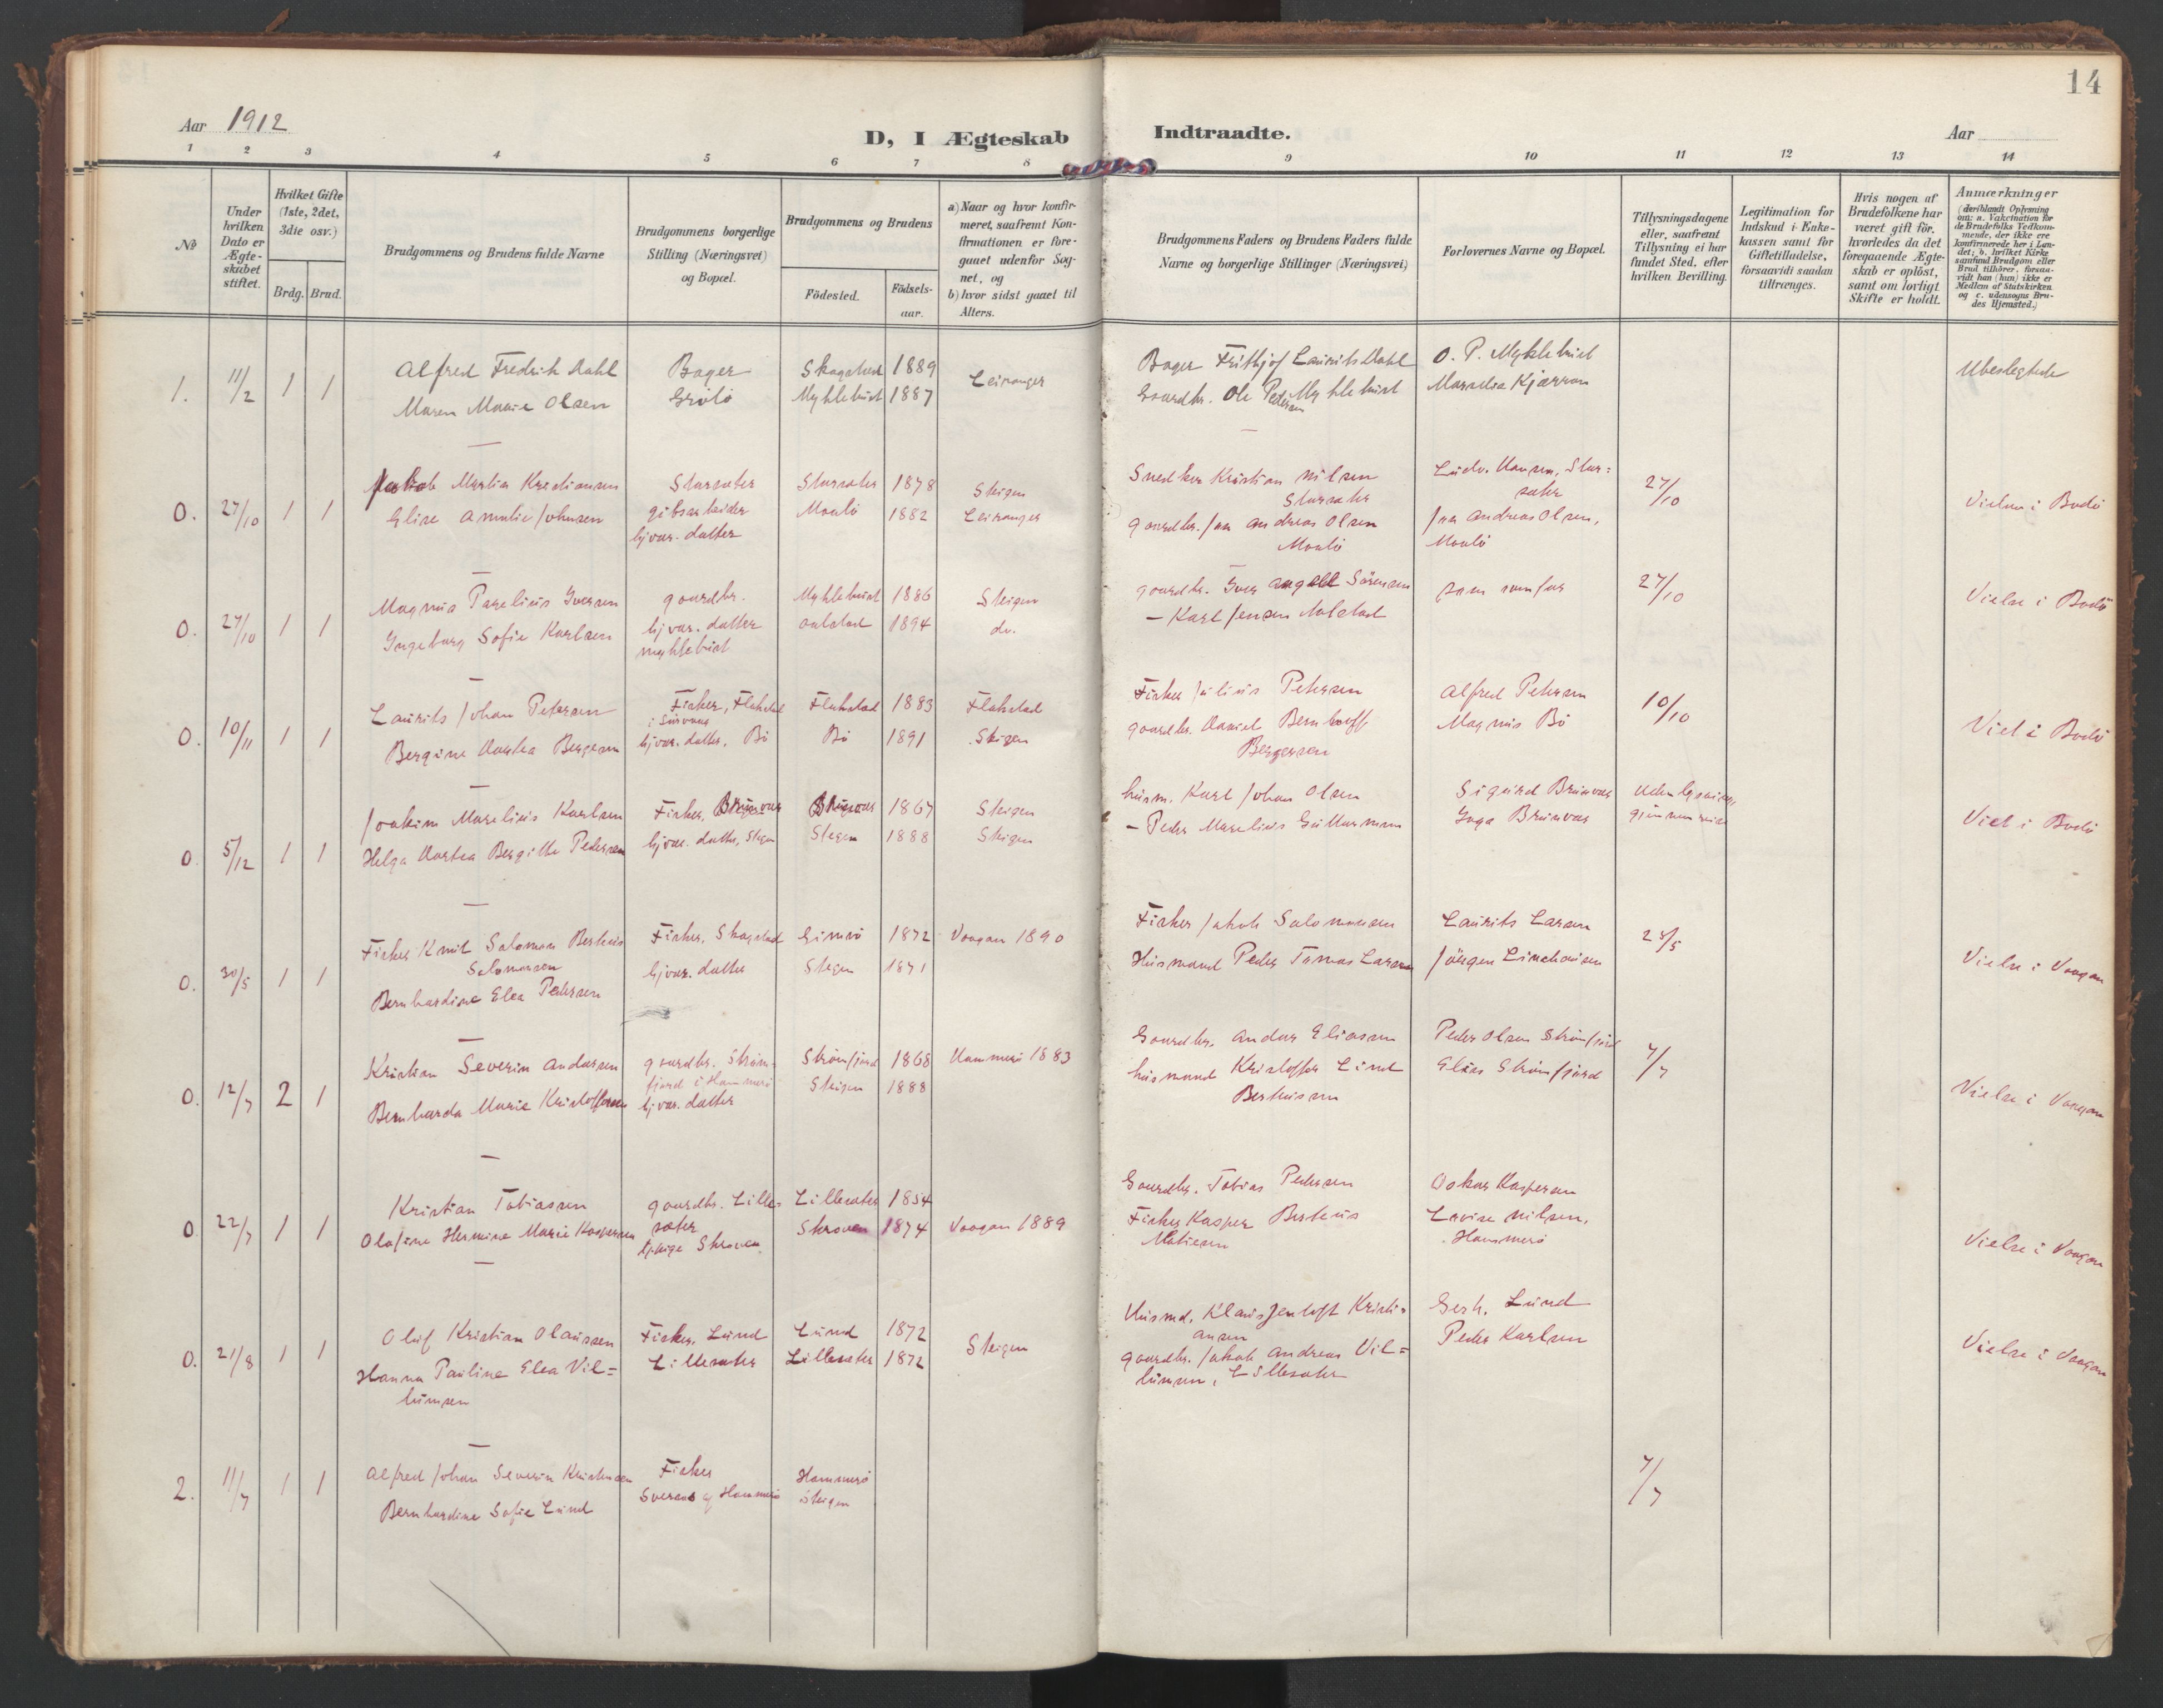 14
Aar 1912
D, I Ægteskab Indtraadte.
Aar
1 2 3 4 5 6 7 8 9 10 11 12 13 14
No
Under hvilken Dato er Ægteskabet stiftet.
Hvilket Gifte (1ste, 2det, 3die osv.)
Brdg. Brud.
Brudgommens og Brudens fulde Navne
Brudgommens borgerlige Stilling (Næringsvei) og Bopæl.
Brudgommens og Brudens
Fødested.
Födsels-aar.
a) Naar og hvor konfir-
meret, saafremt Kon-
firmationen er fore-
gaaet udenfor Sog-
net, og
b) hvor sidst gaaet til
Alters.
Brudgommens Faders og Brudens Faders fulde
Navne og borgerlige Stillinger (Næringsvei)
Forlovernes Navne og Bopæl.
Tillysningsdagene
eller, saafremt
Tillysning ei har
fundet Sted, efter
hvilken Bevilling.
Legitimation for
Indskud i Enke-
kassen samt for
Giftetilladelse,
forsaavidt saadan
tiltrænges.
Hvis nogen af
Brudefolkene har
været gift för,
hvorledes da det
foregaaende Ægte-
skab er oplöst,
samt om lovligt
Skifte er holdt.
Anmærkninger
(deriblandt Oplysning
om: a. Vakcination for
de Brudefolks Vedkom-
mende, der ikke ere
konfirmerede her i Lan-
det; b. hvilket Kirke
samfund Brudgom eller
Brud tilhörer, forsaa-
vidt han (hun) ikke er
Medlem af Statskirken
og c. udensogns Bru-
des Hjemsted.)
1. 11/2 1 1 Alfred Fredrik Dahl Bager Skagstad 1889 Leiranger Bager Frithjof Laurits Dahl O. P. Myklebust Ubeslegtede
Maren Marie Olsen Grötö Myklebust 1887 Gaardbr. Ole Pedersen Myklebust
0. 27/10 1 1 Jakob Martin Kristiansen Storsæter Storsæter 1878 Steigen Snedker Kristian Nilsen Ludv. Hansen, Stor= 27/10 Vielse i Bodö
Storsæter sæter
Elise Amalie Johnsen Maalö 1882 Leiranger gaardbr. Andreas Olsen Andreas Olsen,
hjvær. datter Maalö Maalö
0. 27/10 1 1 Magnus Parelius Iversen gaardbr. Myklebust 1886 Steigen gaardbr. Iver Angell Sörensen som 27/10 Vielse i Bodö
Ingeborg Sofie Karlsen hjvær. datter Aalstad 1894 do. – Karl Jensen Aalstad
Myklebust
0. 10/11 1 1 Laurits Johan Petersen Fisker, Flakstad Flakstad 1883 Flakstad Fisker Julius Petersen Alfred Petersen 10/10 Viet i Bodö
Bergine Dortea Bergersen hjvær. datter, Bö Bö 1891 Steigen gaardbr. Daniel Bernhoff Magnus Bö
Bergersen
0. 5/12 1 1 Joakim Marelius Karlsen Fisker, Brunvær Brunvær 1867 Steigen husm. Karl Johan Olsen Sigurd Brunvær Viet i Bodö
Helga Dortea Bergitte Pedersen hjvær. datter, Stegen Stegen 1888 Steigen – Peder Marelius Guttormsen Inga Brunvær
0. 30/5 1 1 Fisker Knut Salomon Berteus Fisker, Skagstad Gimsö 1872 Vaagan 1890 Fisker Jakob Salomonsen Laurits Larsen 25/5 Vielse i Vaagan
Salomonsen
Bernhardine Elea Pedersen hjvær. datter Stegen 1871 Husmand Peder Tomas Larsen Jörgen Linehausen
0. 12/7 2 1 Kristian Severin Andersen gaardbr. Ström- Strömfjord 1868 Hammerö 1883 Gaardbr. Anders Eliassen Peder Olsen Strömfjord 7/7 Vielse i Vaagan
fjord i Hammerö
Bernharda Marie Kristoffersen hjvær. datter Steigen 1888 husmand Kristoffer Lind Elias Strömfjord
Berteussen
0. 22/7 1 1 Kristian Tobiassen gaardbr. Lille- Lillesæter 1854 Gaardbr. Tobias Pedersen Oskar Kaspersen Vielse i Vaagan
sæter
Olafine Hermine Marie Kaspersen tj.pige Skroven Skroven 1874 Vaagan 1889 Fisker Kasper Berteus Lovise Nilsen,
Matisen Hammerö
0. 21/8 1 1 Oluf Kristian Olaussen Fisker, Lund Lund 1872 Steigen Husmd. Klaus Jentoft Kristi= Gerh. Lund Vielse i Vaagan
ansen
Hanna Pauline Elea Vil= Lillesæter Lillesæter 1872 gaardbr. Jakob Andreas Vil= Peder Karlsen
lumsen lumsen, Lillesæter
2. 11/7 1 1 Alfred Johan Severin Kristensen Fisker Hammerö 7/7
Bernhardine Sofie Lund Steigen